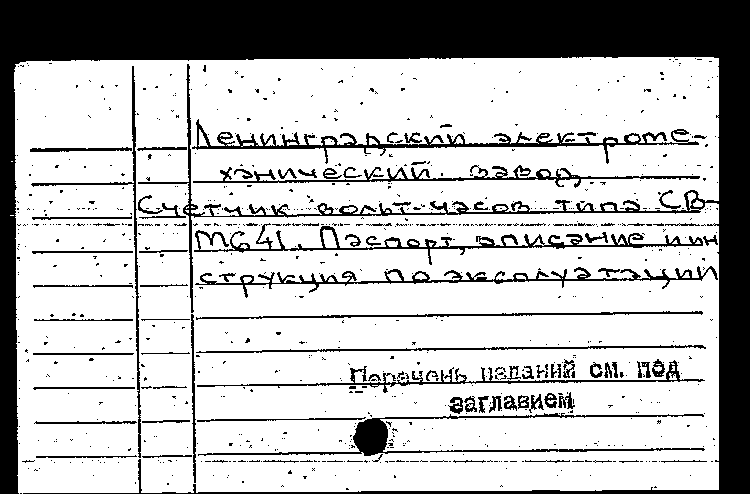 Ленинградский электроме-
ханический завод.
Счетчик вольт-часов типа СВ-
М641. Паспорт, описание и ин
струкция по эксплуатации
Перечень изданий см. под
заглавием